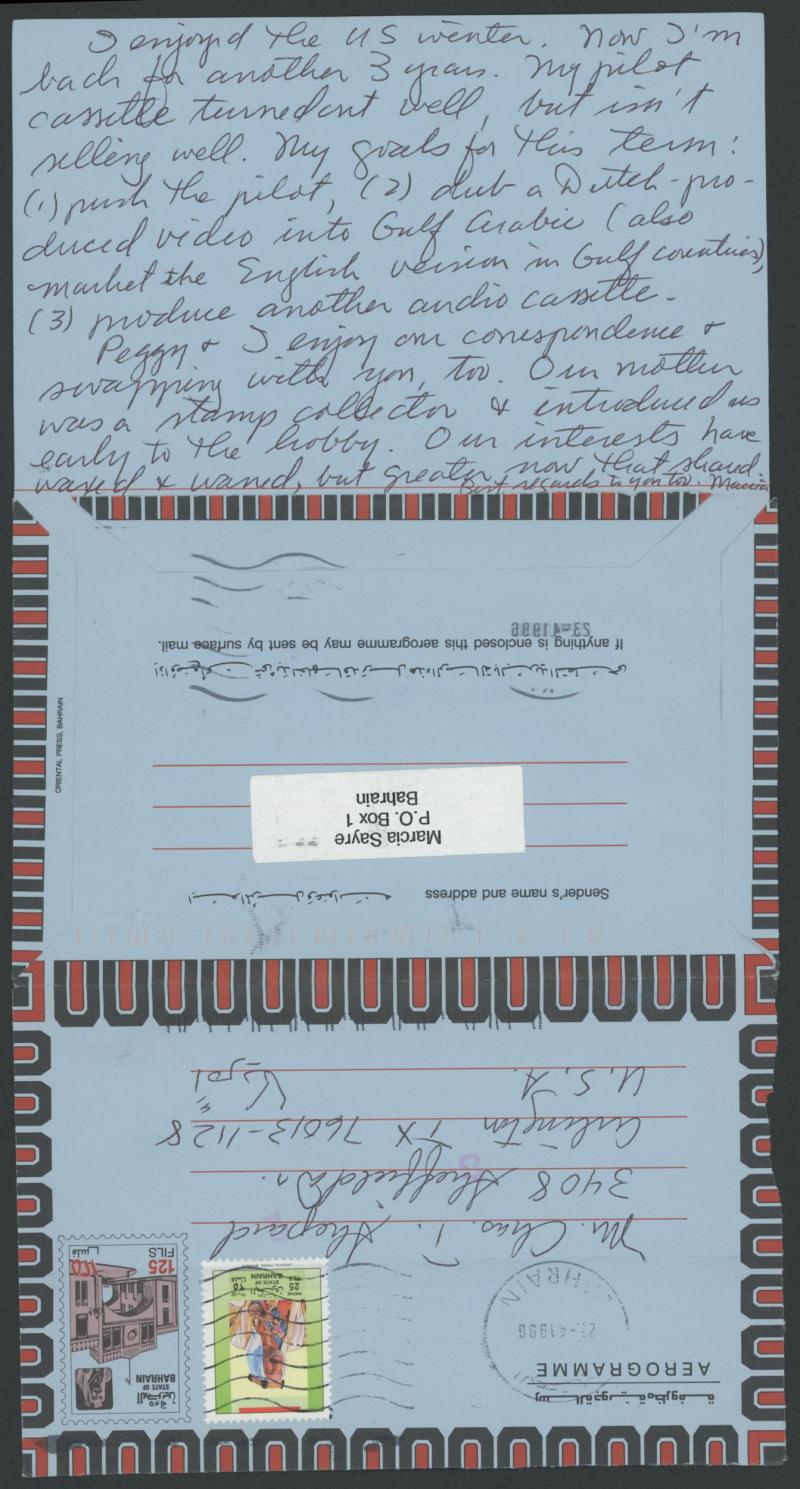 I enjoyed the US winter. Now I'm
back for another 3 years. My pilot
cassette turned out well, but isn't
selling well. My goals for this term:
(1) push the pilot, (2) dub a Dutch-pro-
duced video into Gulf Arabic (also
market the English version in Gulf countries),
(3) produce another audio cassette.
Peggy & I enjoy our correspondence &
swapping with you, too. Our mother
was a stamp collector & introduced us
early to the hobby. Our interests have
waxed & waned, but greater now that shared.
Best regards to you too. Marcia
23-41996
If anything is enclosed this aerogramme may be sent by surface mail.
ORIENTAL PRESS, BAHRAIN
Marcia Sayre
P.O. Box 1
Bahrain
Sender's name and address
AEROGRAMME
BAHRAIN
23-41996
STATE OF
BAHRAIN
دولة البحرين
125
FILS
١٢٥
فلس
POSTAGE
25
FILS
٢٥
فلس
STATE OF
BAHRAIN
Mr. Chas. T. Shepard
3408 Sheffield Dr.
Arlington TX 76013-1128
U.S.A.